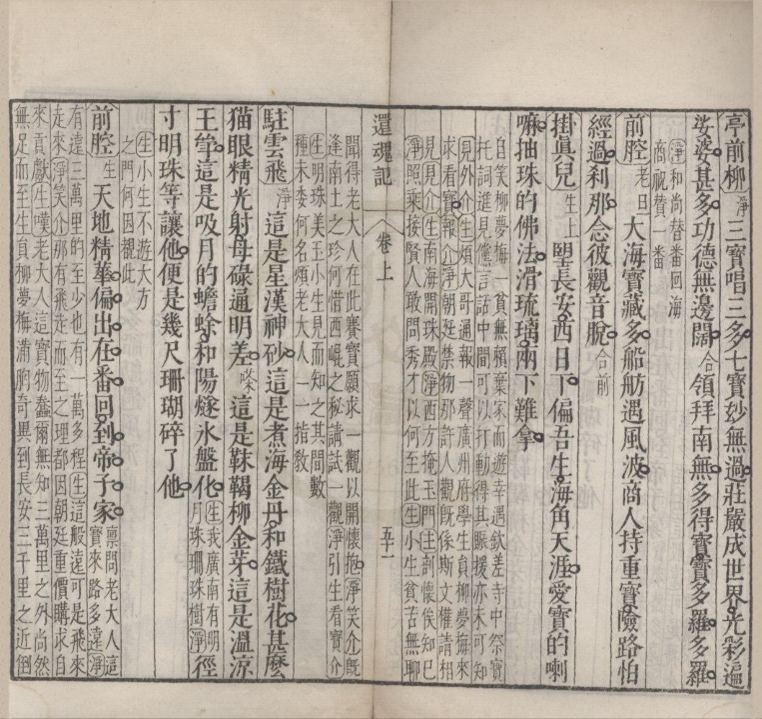 亭前柳 淨三寶唱三多七寶妙無過莊嚴成世界光彩遍
娑婆甚多功德無邊闊合領拜南無多得寶寶多羅多羅
淨和尚替番回海
商祝贊一番
前腔 老旦大海寶藏多船舫遇風波商人持重寶險路怕
經過剎那念彼觀音脫合前
掛眞兒 生上望長安西日下偏吾生海角天涯愛寶的喇
嘛抽珠的佛法滑琉璃兩下難拿
自笑柳夢梅一貧無賴棄家而遊幸遇欽差寺中祭寶
托詞進見儻言話中間可以打動得其賑援亦未可知
見外介生煩大哥通報一聲廣州府學生員柳夢梅來
求看寶報介淨朝廷禁物那許人觀旣係斯文權請相
見見介生南海開珠殿淨西方掩玉門生剖懷俟知己
淨照乘接賢人敢問秀才以何至此生小生貧苦無聊
還魂記
卷上
五十一
聞得老大人在此賽寶願求一觀以開懷抱淨笑介旣
逢南土之珍何惜西崐之秘請試一觀淨引生看寶介
生明珠美玉小生見而知之其間數
種未委何名煩老大人一一指教
駐雲飛 淨這是星漢神砂這是煮海金丹和鐵樹花甚麽
猫眼精光射母碌通明差嗏這是靺鞨柳金芽這是溫涼
王斝這是吸月的蟾蜍和陽燧氷盤化生我廣南有明
月珠珊瑚樹淨徑
寸明珠等讓他便是幾尺珊瑚碎了他
生小生不遊大方
之門何因觀此
前腔 生天地精華偏出在番回到帝子家稟問老大人這
寶來路多遠淨
有遠三萬里的至少也有一萬多程生這般遠可是飛來
走來淨笑介那有飛走而至之理都因朝廷重價購求自
來貢獻生嘆老大人這寶物蠢爾無知三萬里之外尚然
無足而至生員柳夢梅滿胸奇異到長安三千里之近倒